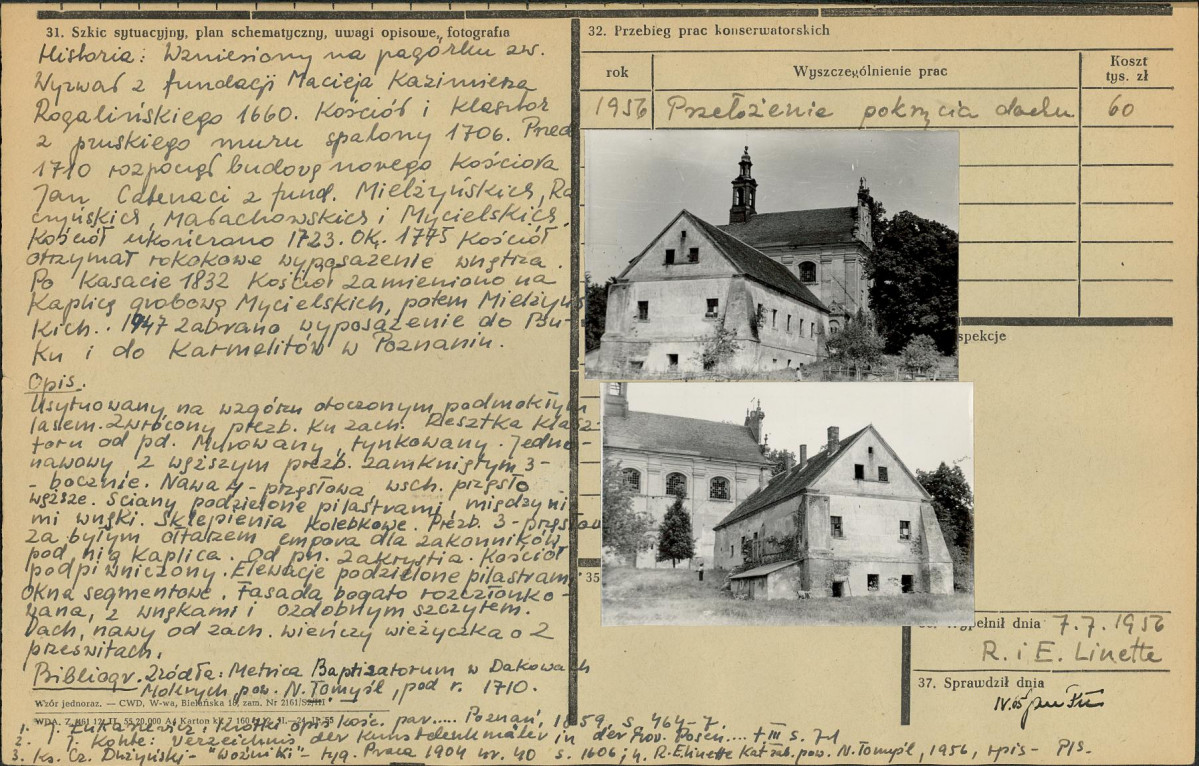 31. Szkic sytuacyjny, plan schematyczny, uwagi opisowe, fotografia
Historia: Wzniesiony na pagórku zw.
Wyrwał z fundacji Macieja Kazimierza
Rogalińskiego 1660. Kościół i Klasztor
z pruskiego muru spalony 1706. Przed
1710 rozpoczął budowę nowego Kościoła
Jan Catenaci z fund. Mielżyńskich, Ra
czyńskich, Małachowskich i Mycielskich.
Kościół ukończono 1723. Ok. 1775 Kościół
otrzymał rokokowe wyposażenie wnętrza.
Po Kasacie 1832 Kościół zamieniono na
Kaplicę grobową Mycielskich, potem Mielżyńs
kich. 1947 zabrano wyposażenie do Bu-
ku i do Karmelitów w Poznaniu.
Opis.
Usytuowany na wzgórzu otoczonym podmokłym
lasem. Zwrócony prezb. ku zach. Resztka Klasz-
toru od pd. Murowany, tynkowany. Jedno-
nawowy, z węższym prezb. zamkniętym 3-
-bocznie. Nawa 4-przęsłowa wsch. przęsło
węższe. Ściany podzielone pilastrami, między ni
mi wnęki. Sklepienia Kolebkowe. Prezb. 3-przęsłow
za byłym ołtarzem empora dla zakonników
pod nią Kaplica. Od pn. zakrystia. Kościół
podpiwniczony. Elewacje podzielone pilastrami
Okna segmentowe. Fasada bogato rozczłonko-
wana, z wnękami i ozdobnym szczytem.
Dach, nawy od zach. wieńczy wieżyczka o 2
prześwitach.
Bibliogr. Źródła: Metrica Baptisatorum w Dakowach
Mokrych, pow. N. Tomyśl, pod r. 1710.
Wzór jednoraz. — CWD, W-wa, Bielańska 18, zam. Nr 2161/Sz/III
WDA. Z. 2161 12 II. 55 20.000 A4 Karton kl. 7 160 II. — 24 II. 55
1. J. Łukaszewicz: Krótki opis kośc. par..... Poznań, 1859, s. 464-7.
2. J. Kohte: Verzeichnis der Kunstdenkmäler in der Prov. Posen.... t III s. 71
3. Ks. Cz. Dużyński - "Woźniki" - tyg. Praca 1904 nr. 40 s. 1606; 4. R. E. Linette Kat. zab. pow. N. Tomyśl, 1956, rpis - PIS.
32. Przebieg prac konserwatorskich
rok Wyszczególnienie prac Koszt tys. zł
1956 Przełożenie pokrycia dachu 60
spekcje
35
Wypełnił dnia 7.7.1956
R. i E. Linette
37. Sprawdził dnia